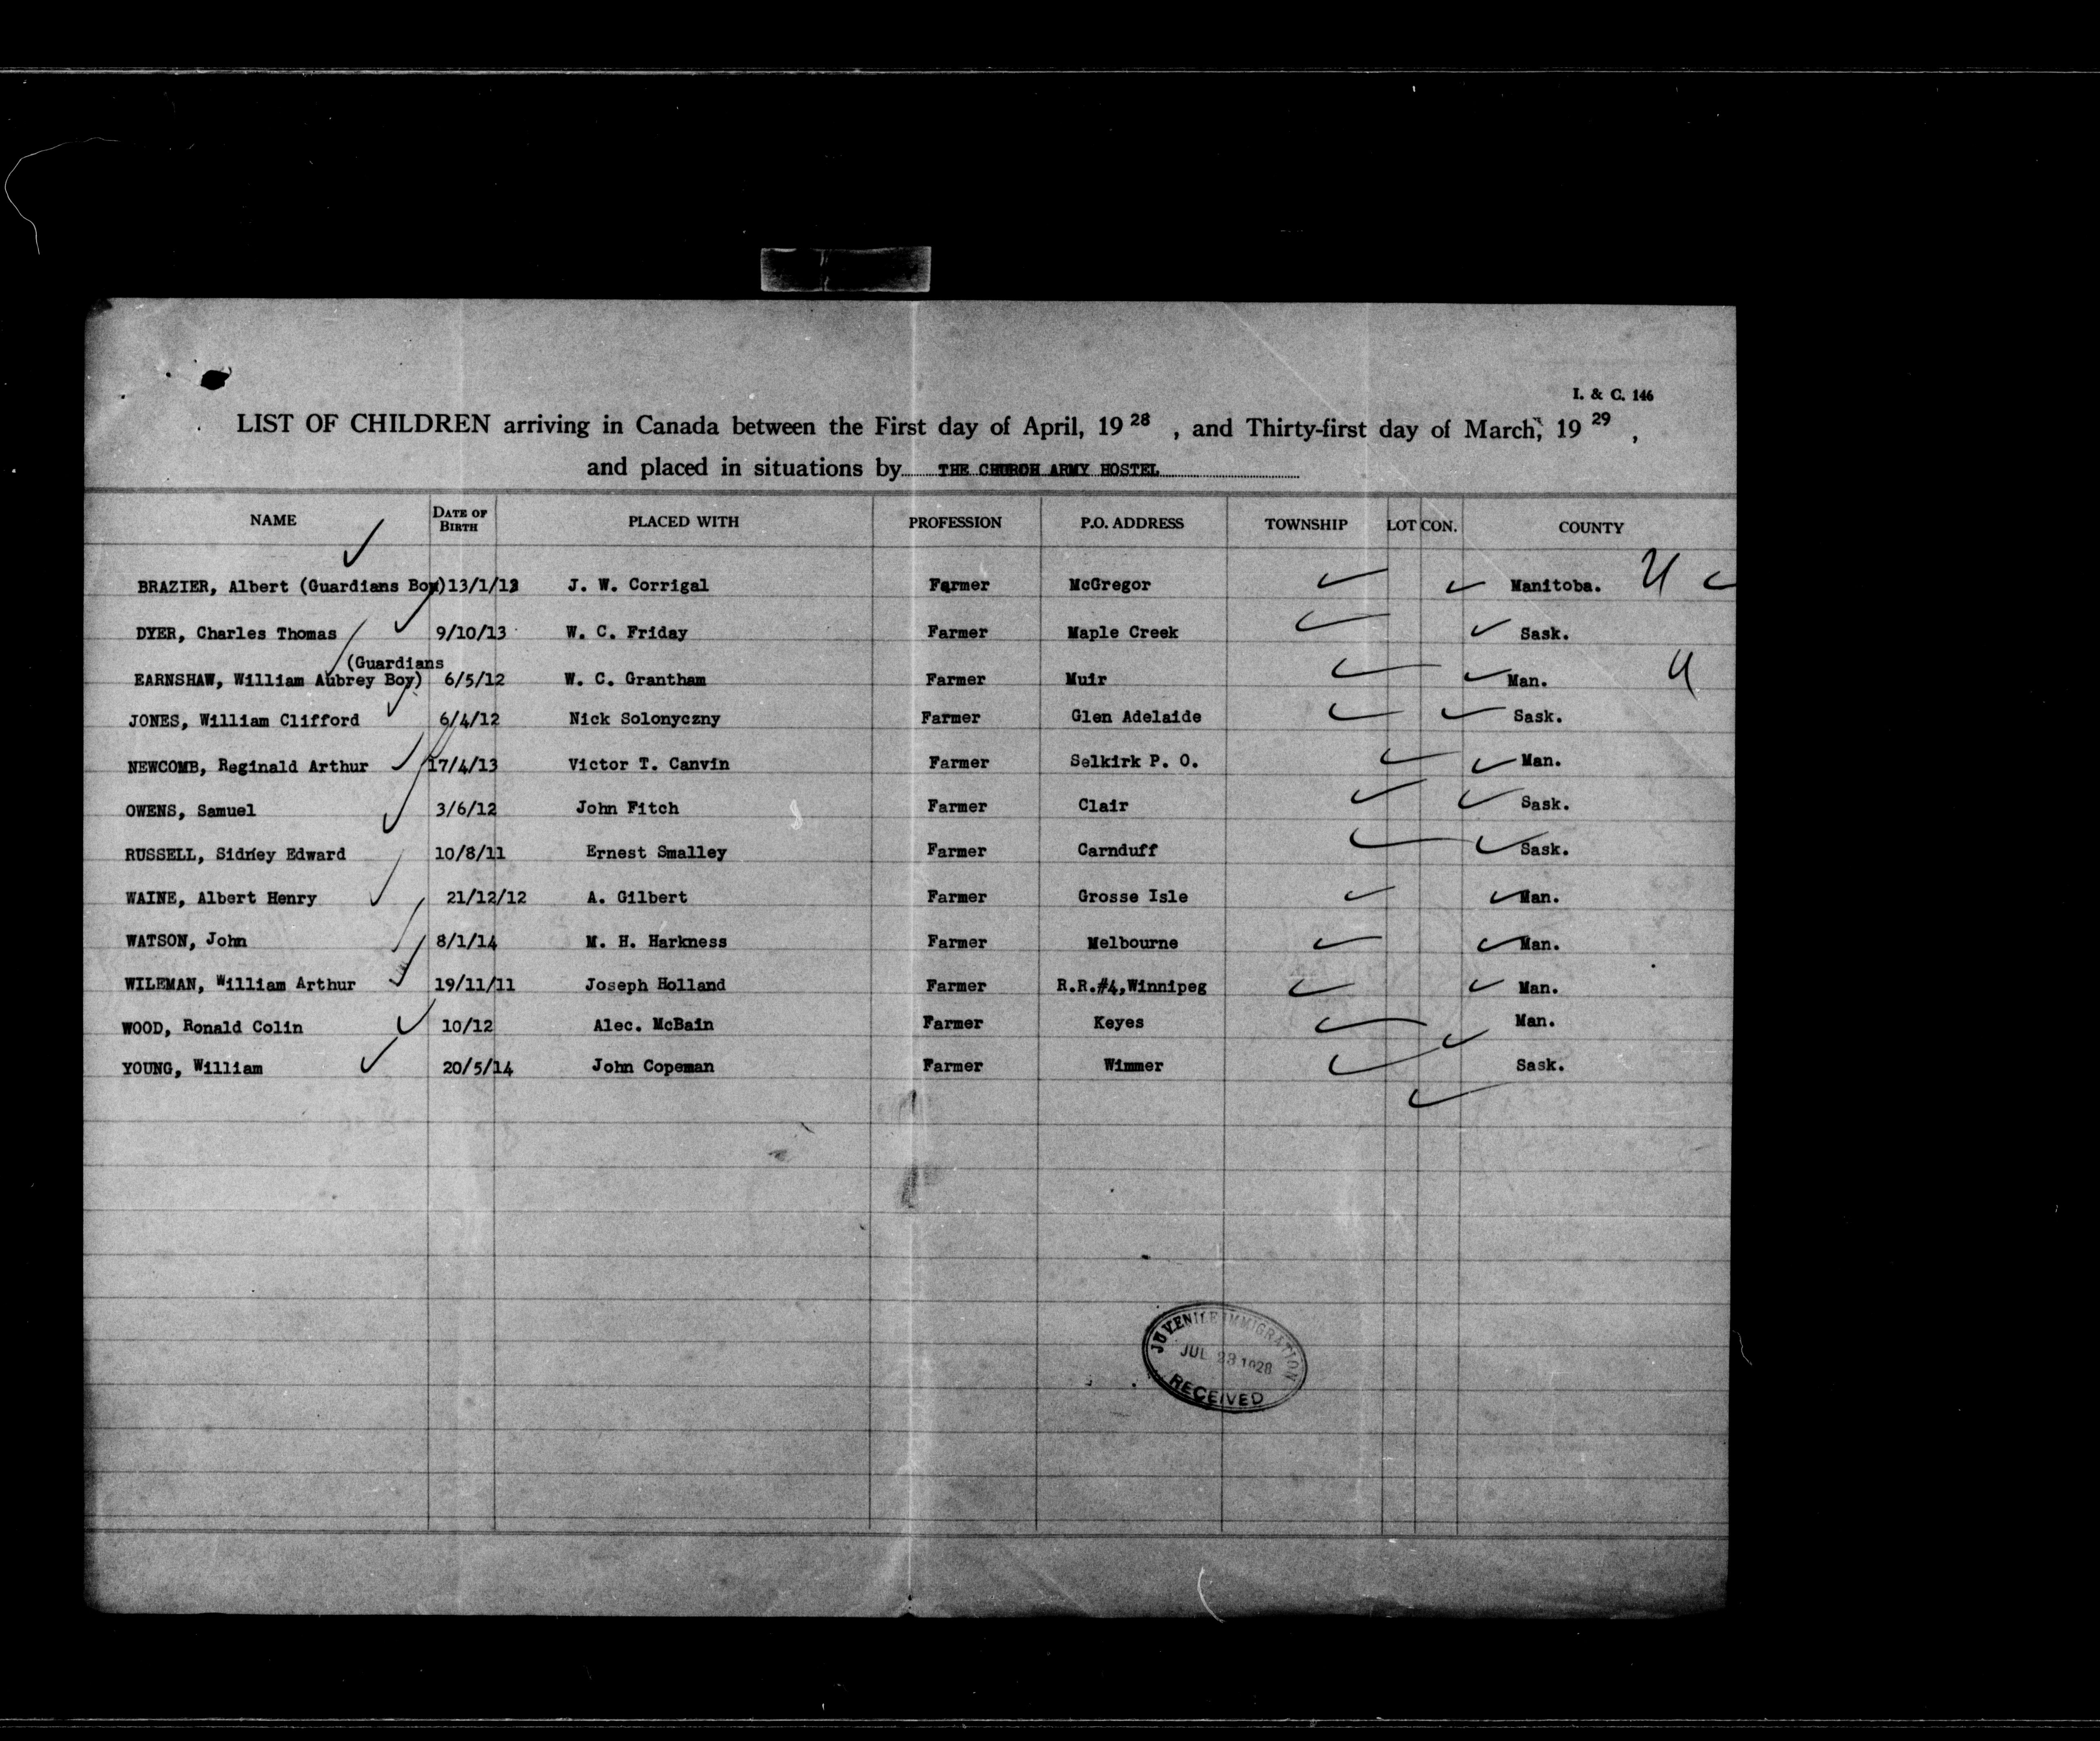 I. & C. 146
LIST OF CHILDREN arriving in Canada between the First day of April, 19 28 , and Thirty-first day of March, 19 29 ,
and placed in situations by THE CHURCH ARMY HOSTEL
NAME DATE OF BIRTH PLACED WITH PROFESSION P.O. ADDRESS TOWNSHIP LOT CON. COUNTY
BRAZIER, Albert (Guardians Boy) 13/1/12 J. W. Corrigal Farmer McGregor Manitoba. U
DYER, Charles Thomas 9/10/13 W. C. Friday Farmer Maple Creek Sask.
(Guardians
EARNSHAW, William Aubrey Boy) 6/5/12 W. C. Grantham Farmer Muir Man. U
JONES, William Clifford 6/4/12 Nick Solonyczny Farmer Glen Adelaide Sask.
NEWCOMB, Reginald Arthur 17/4/13 Victor T. Canvin Farmer Selkirk P. O. Man.
OWENS, Samuel 3/6/12 John Fitch Farmer Clair Sask.
RUSSELL, Sidney Edward 10/8/11 Ernest Smalley Farmer Carnduff Sask.
WAINE, Albert Henry 21/12/12 A. Gilbert Farmer Grosse Isle Man.
WATSON, John 8/1/14 M. H. Harkness Farmer Melbourne Man.
WILEMAN, William Arthur 19/11/11 Joseph Holland Farmer R.R.#4,Winnipeg Man.
WOOD, Ronald Colin 10/12 Alec. McBain Farmer Keyes Man.
YOUNG, William 20/5/14 John Copeman Farmer Wimmer Sask.
JUVENILE IMMIGRATION
JUL 23 1928
RECEIVED